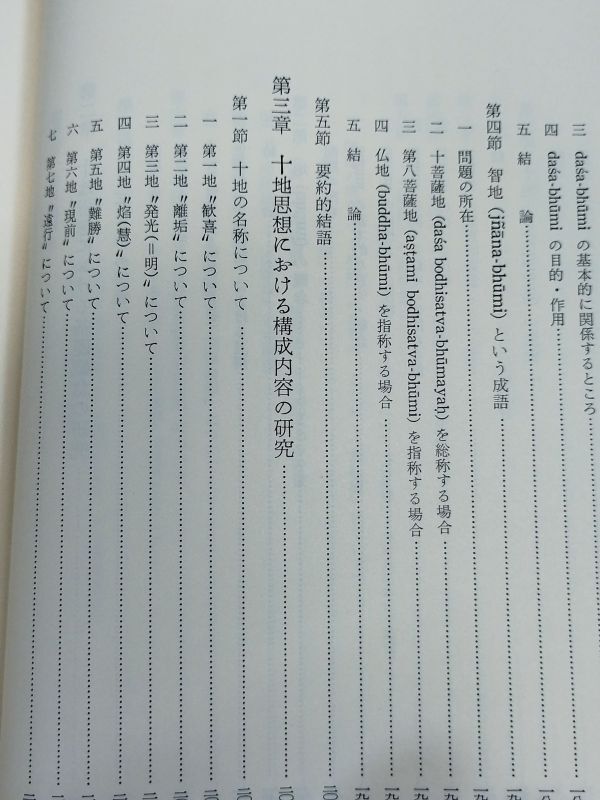 三 daśa-bhūmi の基本的に関係するところ……一八
四 daśa-bhūmi の目的・作用……一八
五 結 論……一九
第四節 智地 (jñāna-bhūmi) という成語……一九
一 問題の所在……一九
二 十菩薩地 (daśa bodhisatva-bhūmayaḥ) を総称する場合……一九
三 第八菩薩地 (aṣṭamī bodhisatva-bhūmi) を指称する場合……一九
四 仏地 (buddha-bhūmi) を指称する場合……一九
五 結 論……一九
第五節 要約的結語……二〇
第三章 十地思想における構成内容の研究……二〇
第一節 十地の名称について……二〇
一 第一地〝歓喜〟について……二〇
二 第二地〝離垢〟について……二〇
三 第三地〝発光(=明)〟について……二
四 第四地〝焰(慧)〟について……二
五 第五地〝難勝〟について……二
六 第六地〝現前〟について……二
七 第七地〝遠行〟について……二